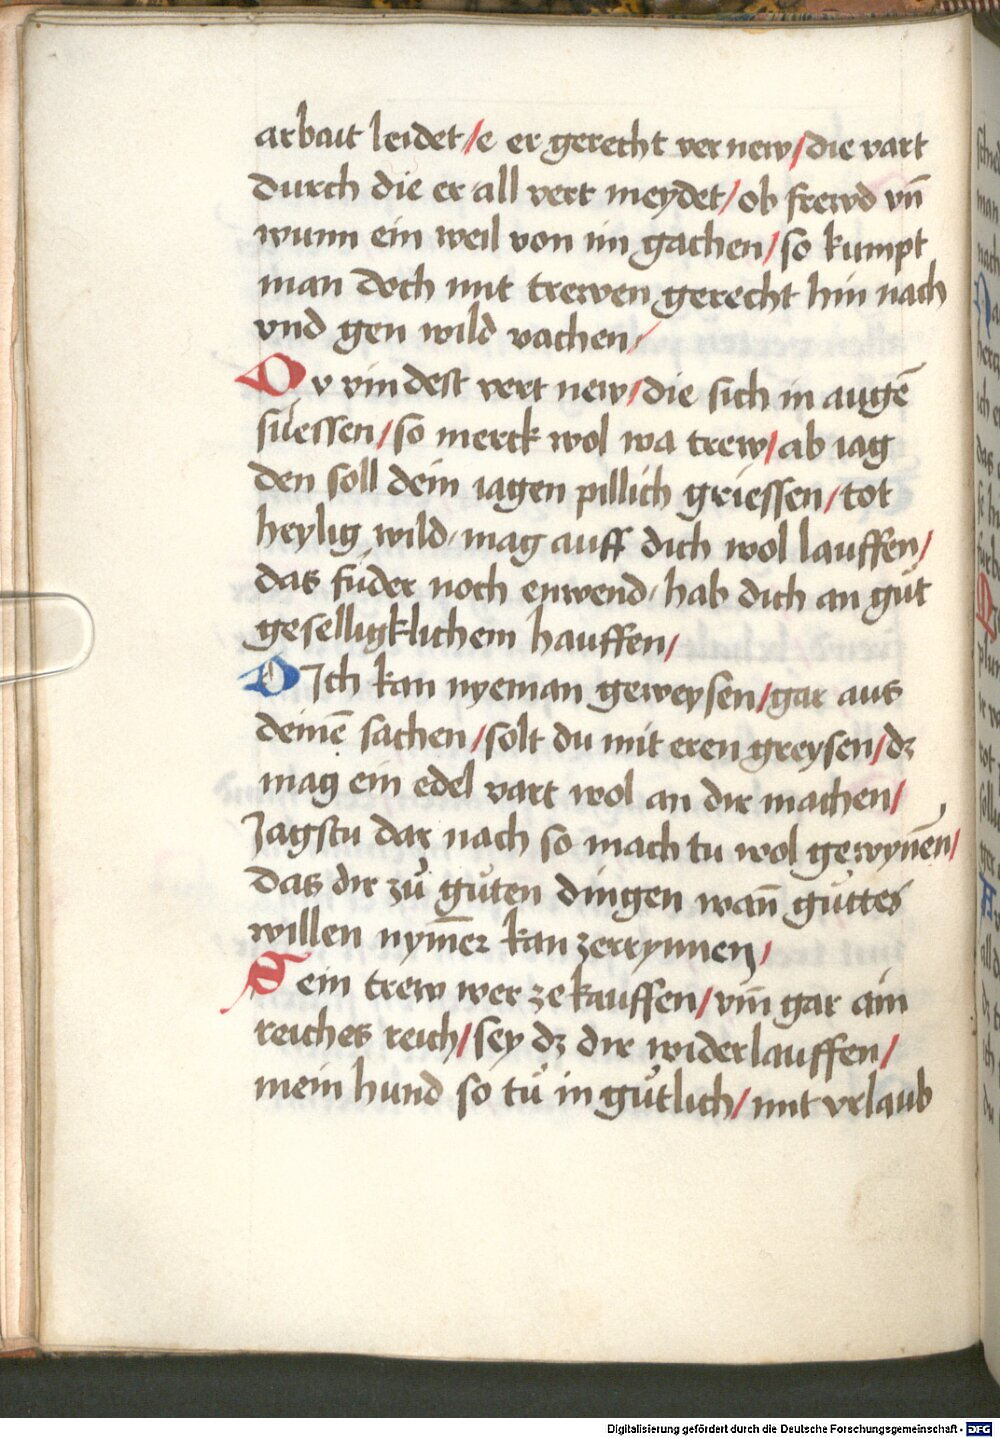 arbait leidet / e er gerecht ver new / die vart
durch die er all vert meydet / ob frewd vn̄
wunn ein weil von im gachen / so kumpt
man doch mit trewen gerecht hin nach
vnd gen wild vachen /
Dv vindest vert new / die sich in augē
süessen / so merck wol wa trew / ab iag
den soll dein iagen pillich griessen / tot
heylig wild / mag auff dich wol lauffen /
das fuder noch enwend / hab dich an gůt
geselligklichem hauffen /
DIch kan nyeman geweysen / gar aus
deinē sachen / solt du mit eren greysen / dz
mag ein edel vart wol an dir machen /
Jagstu dar nach so mach tu wol gewynēn /
das dir zů gůten dingen wan̄ gůttes
willen nym̄er kan zerrynnen /
Sein trew wer ze kauffen / vm̄ gar ain
reiches reich / sey dz dir wider lauffen /
mein hund so tů in gůtlich / mit vrlaub
Digitalisierung gefördert durch die Deutsche Forschungsgemeinschaft - DFG